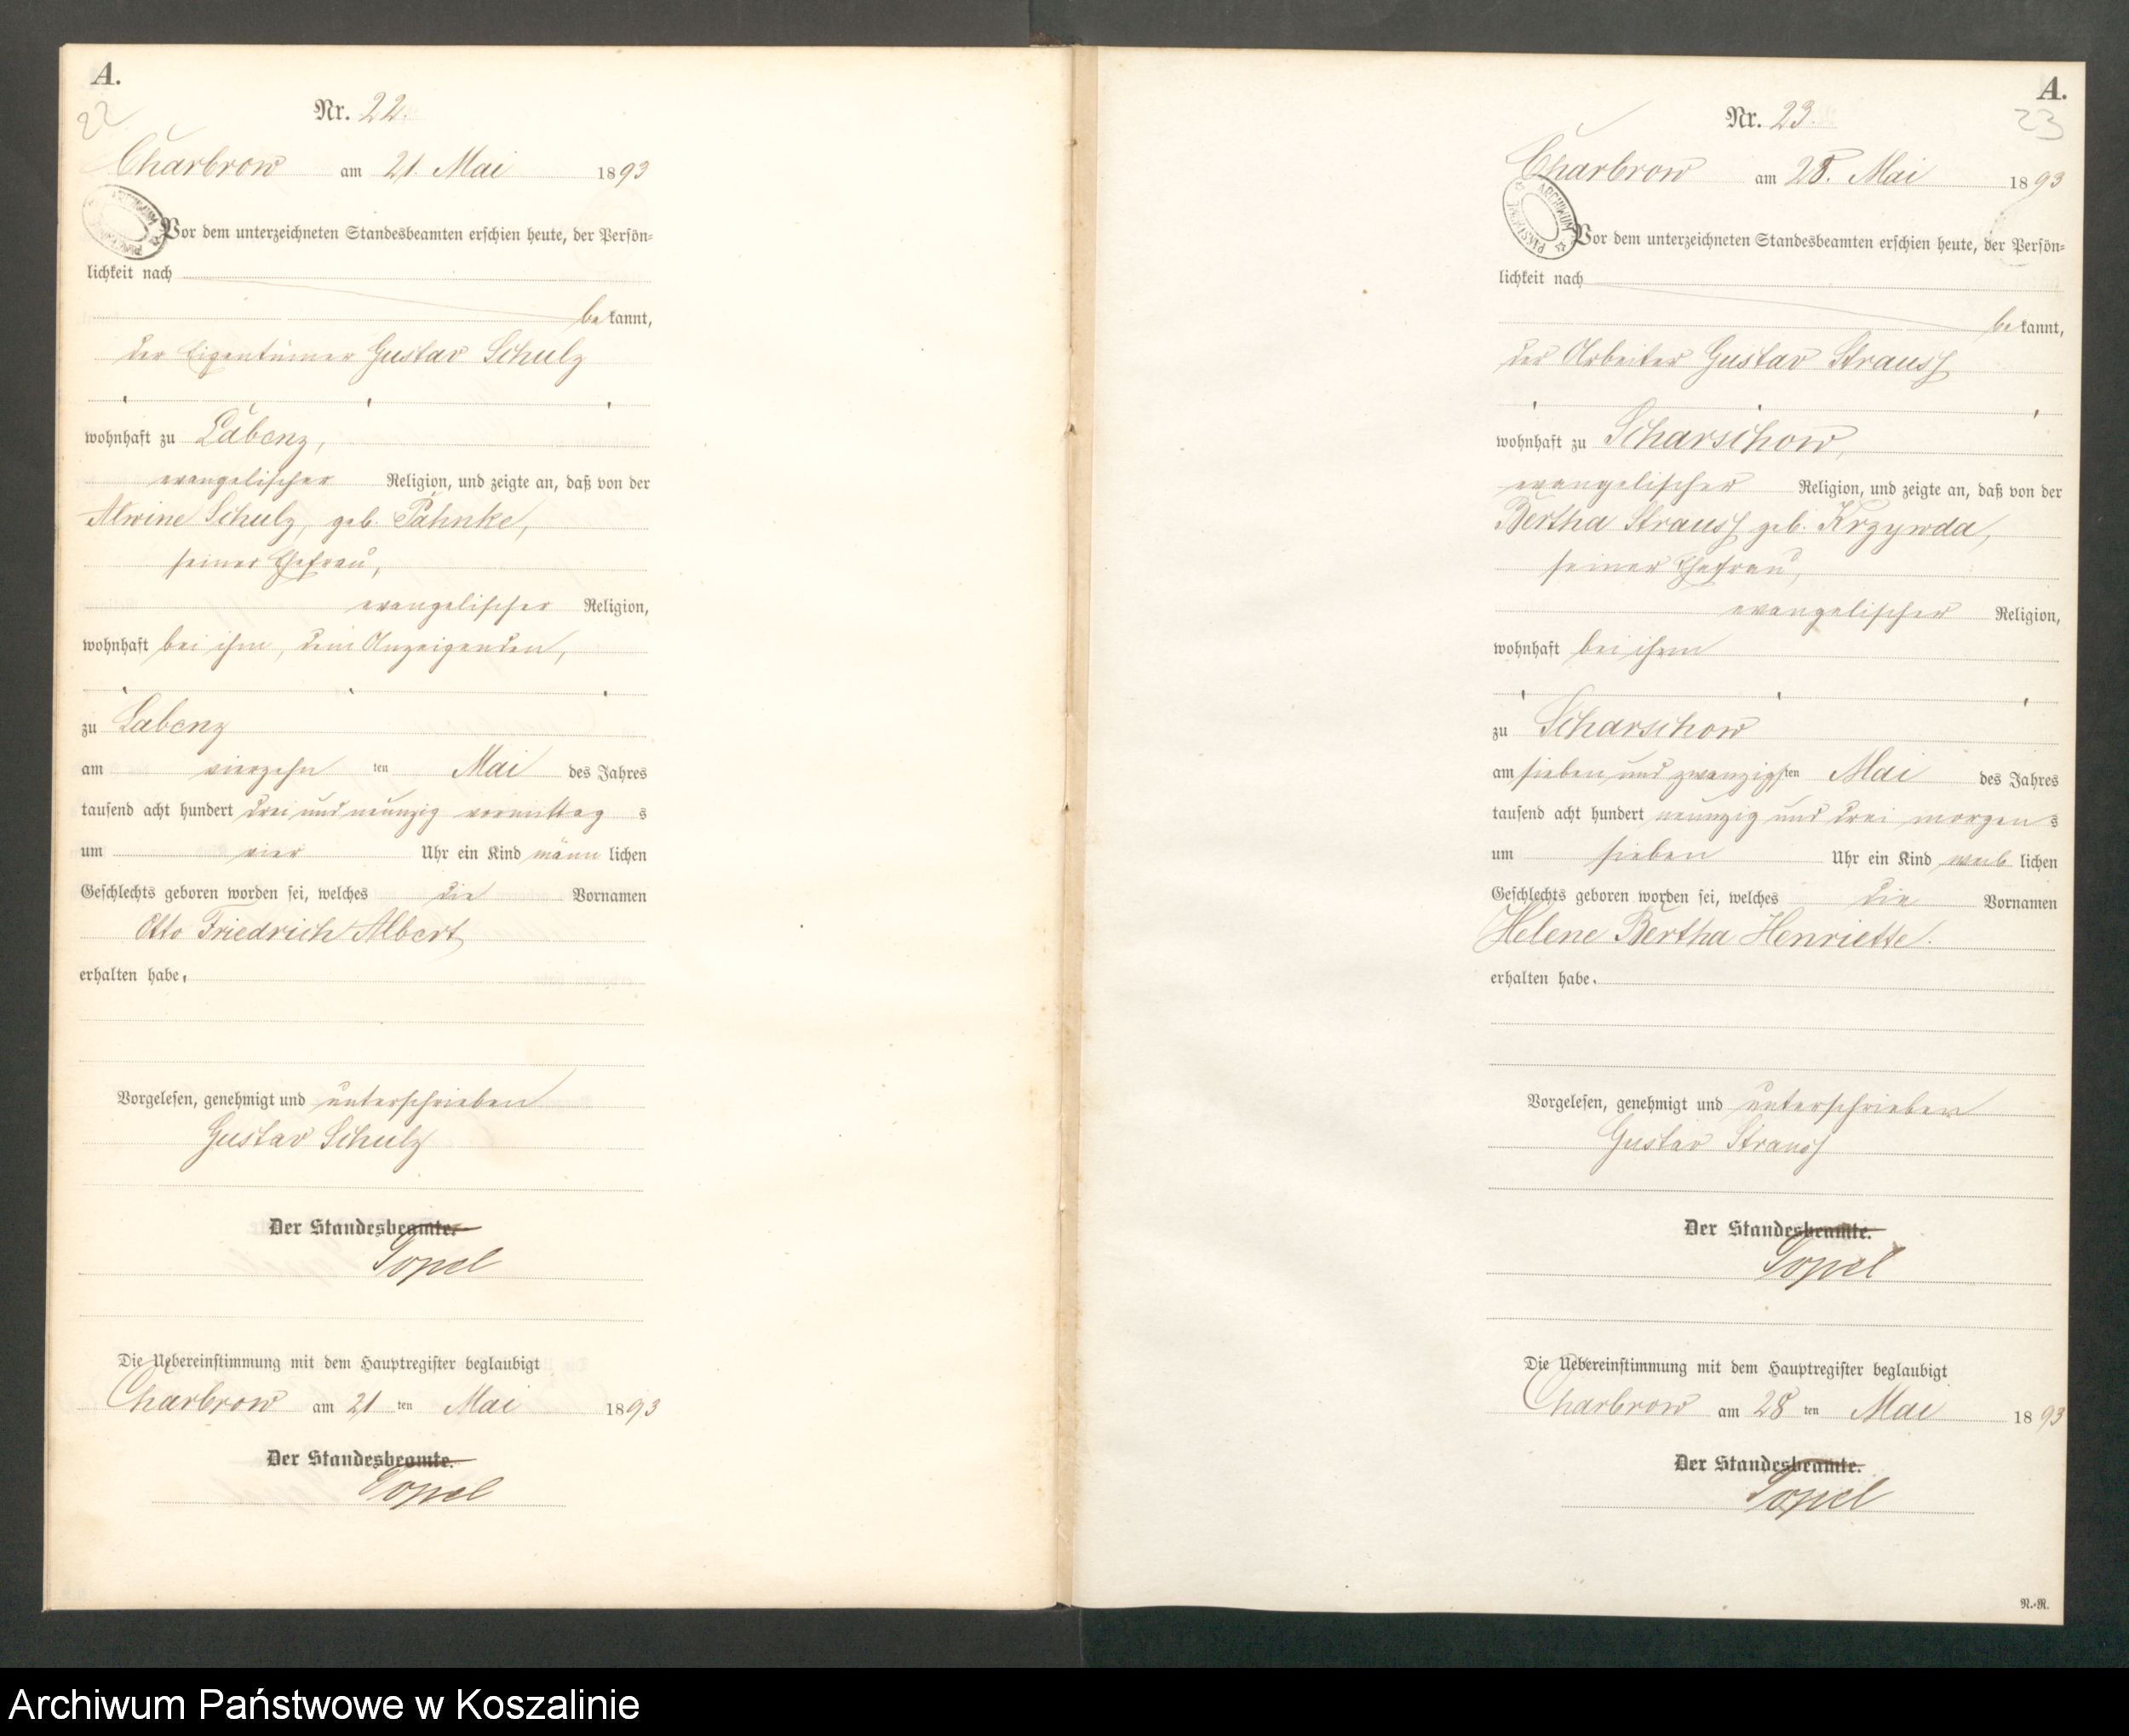 A.
22
Nr. 22.
Charbrow am 21. Mai 1893
Vor dem unterzeichneten Standesbeamten erschien heute, der Persön=
lichkeit nach
bekannt,
der Eigentümer Gustav Schulz
wohnhaft zu Labenz,
evangelischer Religion, und zeigte an, daß von der
Alwine Schulz, geb. Pahnke,
seiner Ehefrau,
evangelischer Religion,
wohnhaft bei ihm, dem Anzeigenden,
zu Labenz
am vierzehnten Mai des Jahres
tausend acht hundert drei und neunzig vormittags
um vier Uhr ein Kind männlichen
Geschlechts geboren worden sei, welches die Vornamen
Otto Friedrich Albert
erhalten habe.
Vorgelesen, genehmigt und unterschrieben
Gustav Schulz
Der Standesbeamte.
Topel
Die Uebereinstimmung mit dem Hauptregister beglaubigt
Charbrow am 21ten Mai 1893
Der Standesbeamte.
Topel
A.
23
Nr. 23.
Charbrow am 28. Mai 1893
ARCHIWUM PAŃSTWOWE
Vor dem unterzeichneten Standesbeamten erschien heute, der Persön=
lichkeit nach
bekannt,
der Arbeiter Gustav Strauß
wohnhaft zu Scharschow,
evangelischer Religion, und zeigte an, daß von der
Bertha Strauß geb. Krzywda,
seiner Ehefrau,
evangelischer Religion,
wohnhaft bei ihm
zu Scharschow
am sieben und zwanzigsten Mai des Jahres
tausend acht hundert neunzig und drei morgens
um sieben Uhr ein Kind weiblichen
Geschlechts geboren worden sei, welches die Vornamen
Helene Bertha Henriette.
erhalten habe.
Vorgelesen, genehmigt und unterschrieben
Gustav Strauß
Der Standesbeamte.
Topel
Die Uebereinstimmung mit dem Hauptregister beglaubigt
Charbrow am 28ten Mai 1893
Der Standesbeamte.
Topel
N.=R.
Archiwum Państwowe w Koszalinie